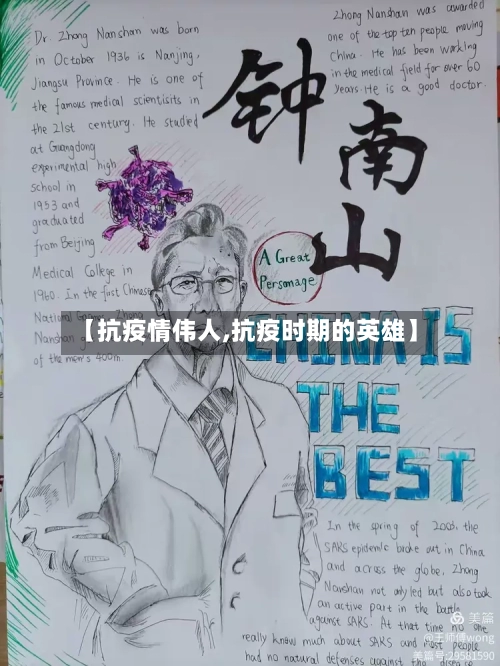 Dr. Zhong Nanshan was born
in October 1936 is Nanjing,
Jiangsu Province. He is one of
the famous medical scientisits in
the 21st century. He studied
at Guangdong
experimental high
school in
1953 and
graduated
from Beijing
Medical College in
1960. In the first Chinese
National Games, Zhong
Nanshan
of the men's 400m.
Zhong Nanshan was awarded
one of the top ten people moving
China. He has been working
in the medical field for over 60
years. He is a good doctor.
钟
南
山
A Great
Personage
【抗疫情伟人,抗疫时期的英雄】
CHINA IS
THE
BEST
In the spring of 2003, the
SARS epidemic broke out in China
and across the globe. Zhong
Nanshan not only led but also took
an active part in the battle
against SARS. At that time no one
really knew much about SARS and most people
had no natural defenses against this
美篇
@王师傅wong
美篇号:29581590